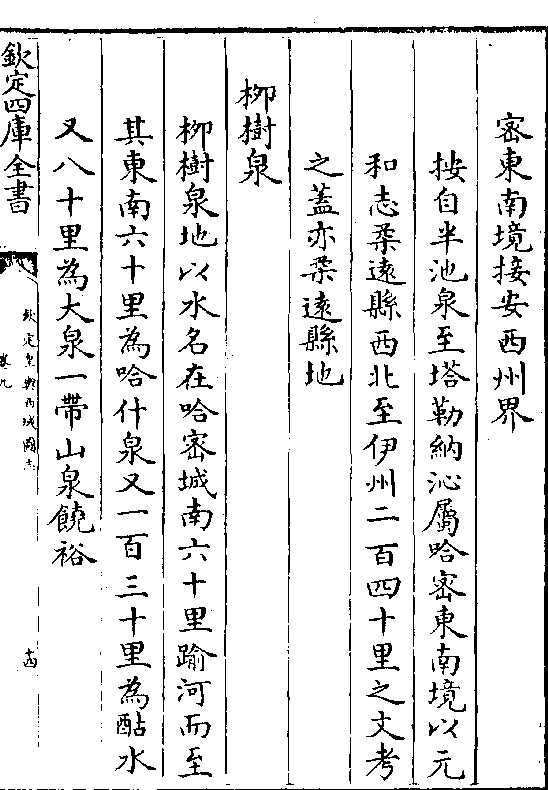 密東南境接安西州界
按自半池泉至塔勒納沁屬哈密東南境以元
和志柔遠縣西北至伊州二百四十里之文考
之蓋亦柔遠縣地
栁樹泉
栁樹泉地以水名在哈密城南六十里踰河而至
其東南六十里為哈什泉又一百三十里為酤水
又八十里為大泉一帶山泉饒裕
欽定四庫全書
欽定皇輿西域圖志
卷九
十四